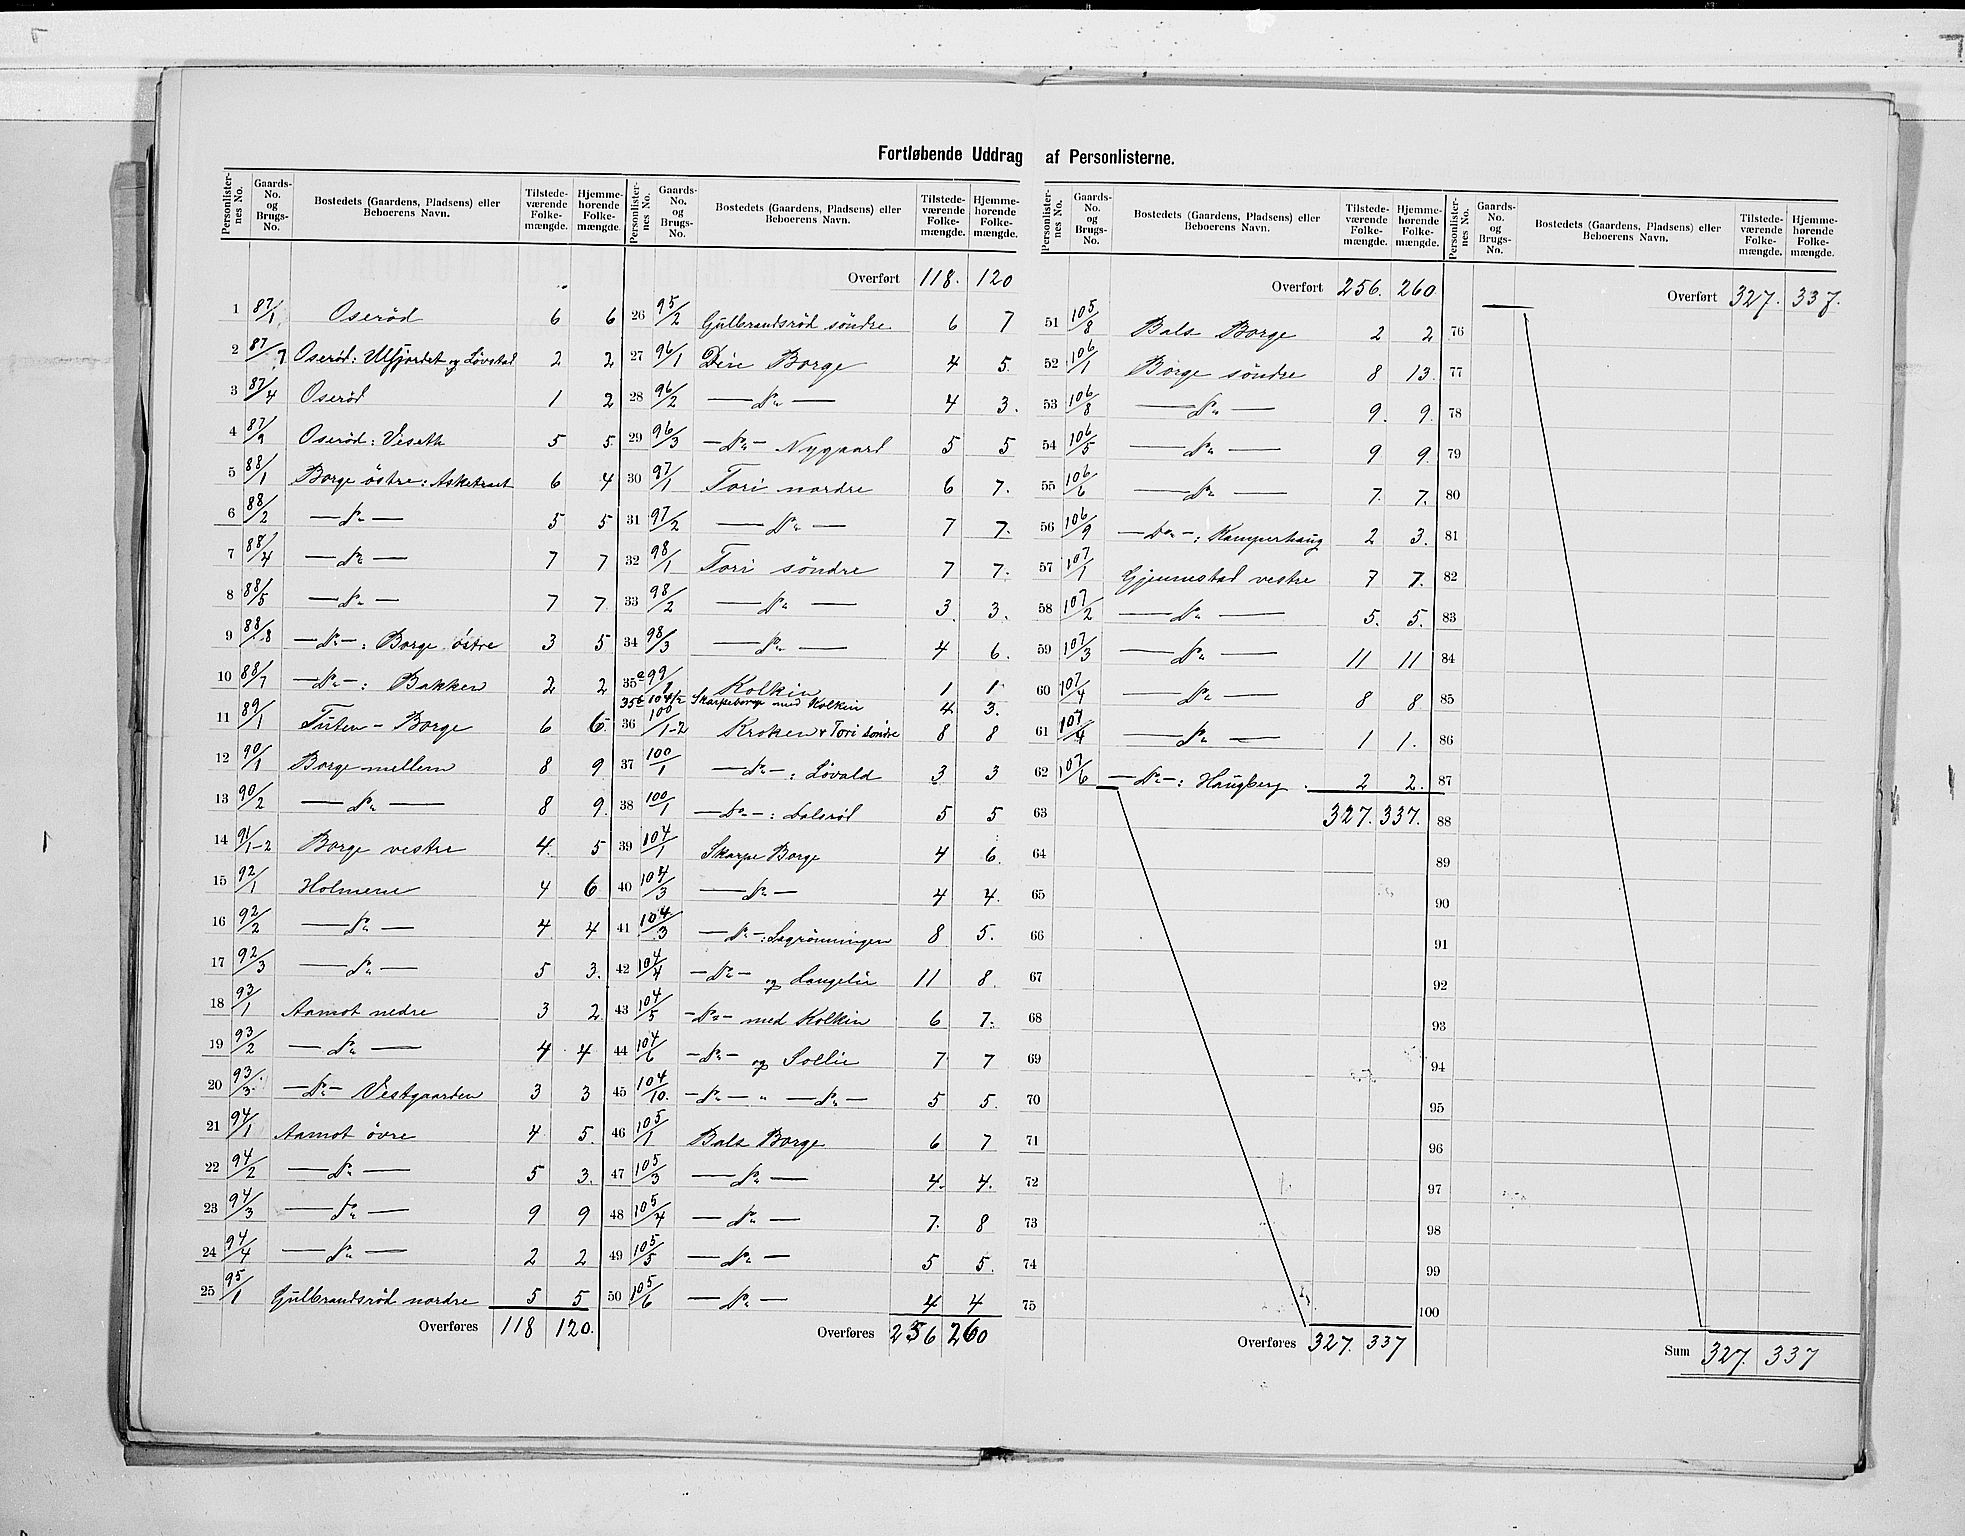 Fortløbende Uddrag af Personlisterne.
Personlisternes No. Gaards-No. og Brugs-No. Bostedets (Gaardens, Pladsens) eller Beboerens Navn. Tilstedeværende Folkemængde. Hjemmehørende Folkemængde.
1 87/1 Oserød 6 6
2 87/7 Oserød: Ulfjordet og Løvstad 2 2
3 87/4 Oserød 1 2
4 87/9 Oserød: Veseth 5 5
5 88/1 Borge østre: Asketræet 6 4
6 88/2 — Do — 5 5
7 88/4 — Do — 7 7
8 88/5 — Do — 7 7
9 88/8 — Do —: Borge østre 3 5
10 88/7 — Do —: Bakken 2 2
11 89/1 Tuten - Borge 6 6
12 90/1 Borge mellem 8 9
13 90/2 — Do — 8 9.
14 91/1-2 Borge vestre 4. 5
15 92/1 Holmene 4 6
16 92/2 — Do — 4. 4
17 92/3 — Do — 5 3.
18 93/1 Aamot nedre 3 2
19 93/2 — Do — 4 4
20 93/3 — Do — Vestgaarden 3 3
21 94/1 Aamot øvre 4 5.
22 94/2 — Do — 5 3.
23 94/3 — Do — 9 9
24 94/4 — Do — 2 2
25 95/1 Gulbrandsrød nordre 5 5
Overføres 118 120.
Personlisternes No. Gaards-No. og Brugs-No. Bostedets (Gaardens, Pladsens) eller Beboerens Navn. Tilstedeværende Folkemængde. Hjemmehørende Folkemængde.
Overført 118. 120
26 95/2 Gulbrandsrød søndre 6 7
27 96/1 Dere Borge 4 5.
28 96/2 — Do — 4 3.
29 96/3 — Do — Nygaard 5 5
30 97/1 Tori nordre 6 7.
31 97/2 — Do — 7 7.
32 98/1 Tori søndre 7 7.
33 98/2 — Do — 3. 3.
34 98/3 — Do — 4 6.
35a 99/1 Kolkin 1 1
35b 104/2 Skarpeborge med Kolkin 4 3.
36 100/1-2 Kroken & Tori søndre 8 8
37 100/1 — Do —: Løvald 3 3
38 100/1 — Do —: Dalsrød 5 5
39 104/1 Skarpe Borge 4 6.
40 104/3 — Do — 4 4.
41 104/3 — Do —: Sagrønningen 8 5.
42 104/4 — Do — og Langelie 11 8.
43 104/5 — Do — med Kolkin 6 7.
44 104/6 — Do — og Sollie 7 7
45 104/10. — Do — " — Do — 5 5.
46 105/1 Bals Borge 6 7
47 105/3 — Do — 4. 4.
48 105/4 — Do — 7. 8
49 105/5 — Do — 5 5.
50 105/6 — Do — 4 4
Overføres 256 260
Personlisternes No. Gaards-No. og Brugs-No. Bostedets (Gaardens, Pladsens) eller Beboerens Navn. Tilstedeværende Folkemængde. Hjemmehørende Folkemængde.
Overført 256. 260
51 105/8 Bals Borge 2 2
52 106/1 Borge søndre 8 13.
53 106/8 — Do — 9. 9.
54 106/5 — Do — 9 9.
55 106/6 — Do — 7. 7.
56 106/9 — Do —: Kamperhaug 2 3.
57 107/1 Gjennestad vestre 7 7.
58 107/2 — Do — 5. 5.
59 107/3 — Do — 11 11
60 107/4 — Do — 8 8
61 107/4 — Do — 1 1.
62 107/6 — Do —: Haugberg. 2 2.
63 327. 337.
64
65
66
67
68
69
70
71
72
73
74
75
Overføres 327. 337
Personlisternes No. Gaards-No. og Brugs-No. Bostedets (Gaardens, Pladsens) eller Beboerens Navn. Tilstedeværende Folkemængde. Hjemmehørende Folkemængde.
Overført 327. 337.
76
77
78
79
80
81
82
83
84
85
86
87
88
89
90
91
92
93
94
95
96
97
98
99
100
Sum 327. 337